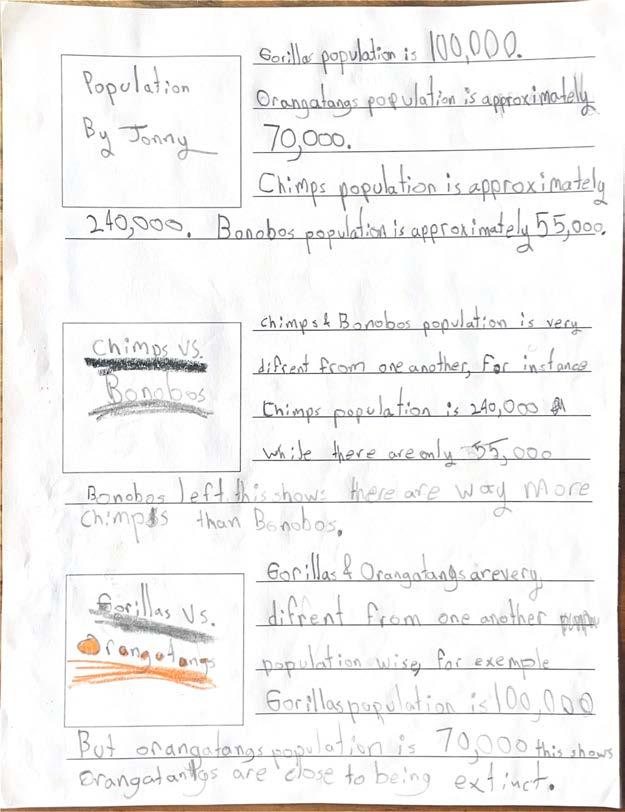 Population
By Jonny
Gorillas population is 100,000.
Orangatangs population is approximately
70,000.
Chimps population is approximately
240,000. Bonobos population is approximately 55,000.
Chimps VS.
Bonobos
Chimps & Bonobos population is very
difrent from one another, For instance
Chimps population is 240,000
while there are only 55,000
Bonobos left. this shows there are way more
Chimps than Bonobos.
Gorillas VS.
Orangatangs
Gorillas & Orangatangs are very
difrent from one another
population wise, for exemple
Gorillas population is 100,000
But orangatangs population is 70,000 this shows
Orangatangs are close to being extinct.